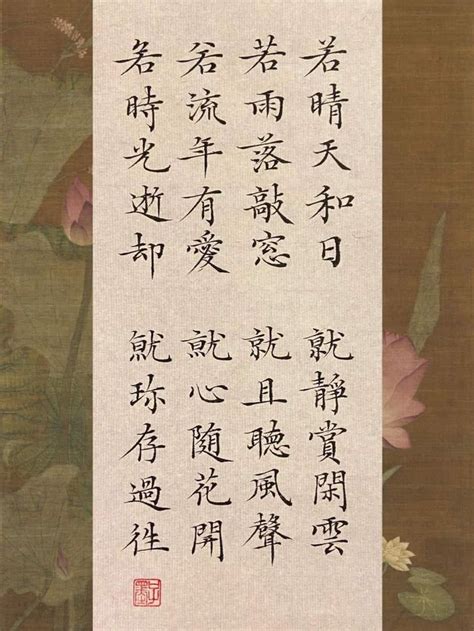 若晴天和日 就靜賞閑雲
若雨落敲窓 就且聽風聲
若流年有愛 就心隨花開
若時光逝却 就珎存過徃